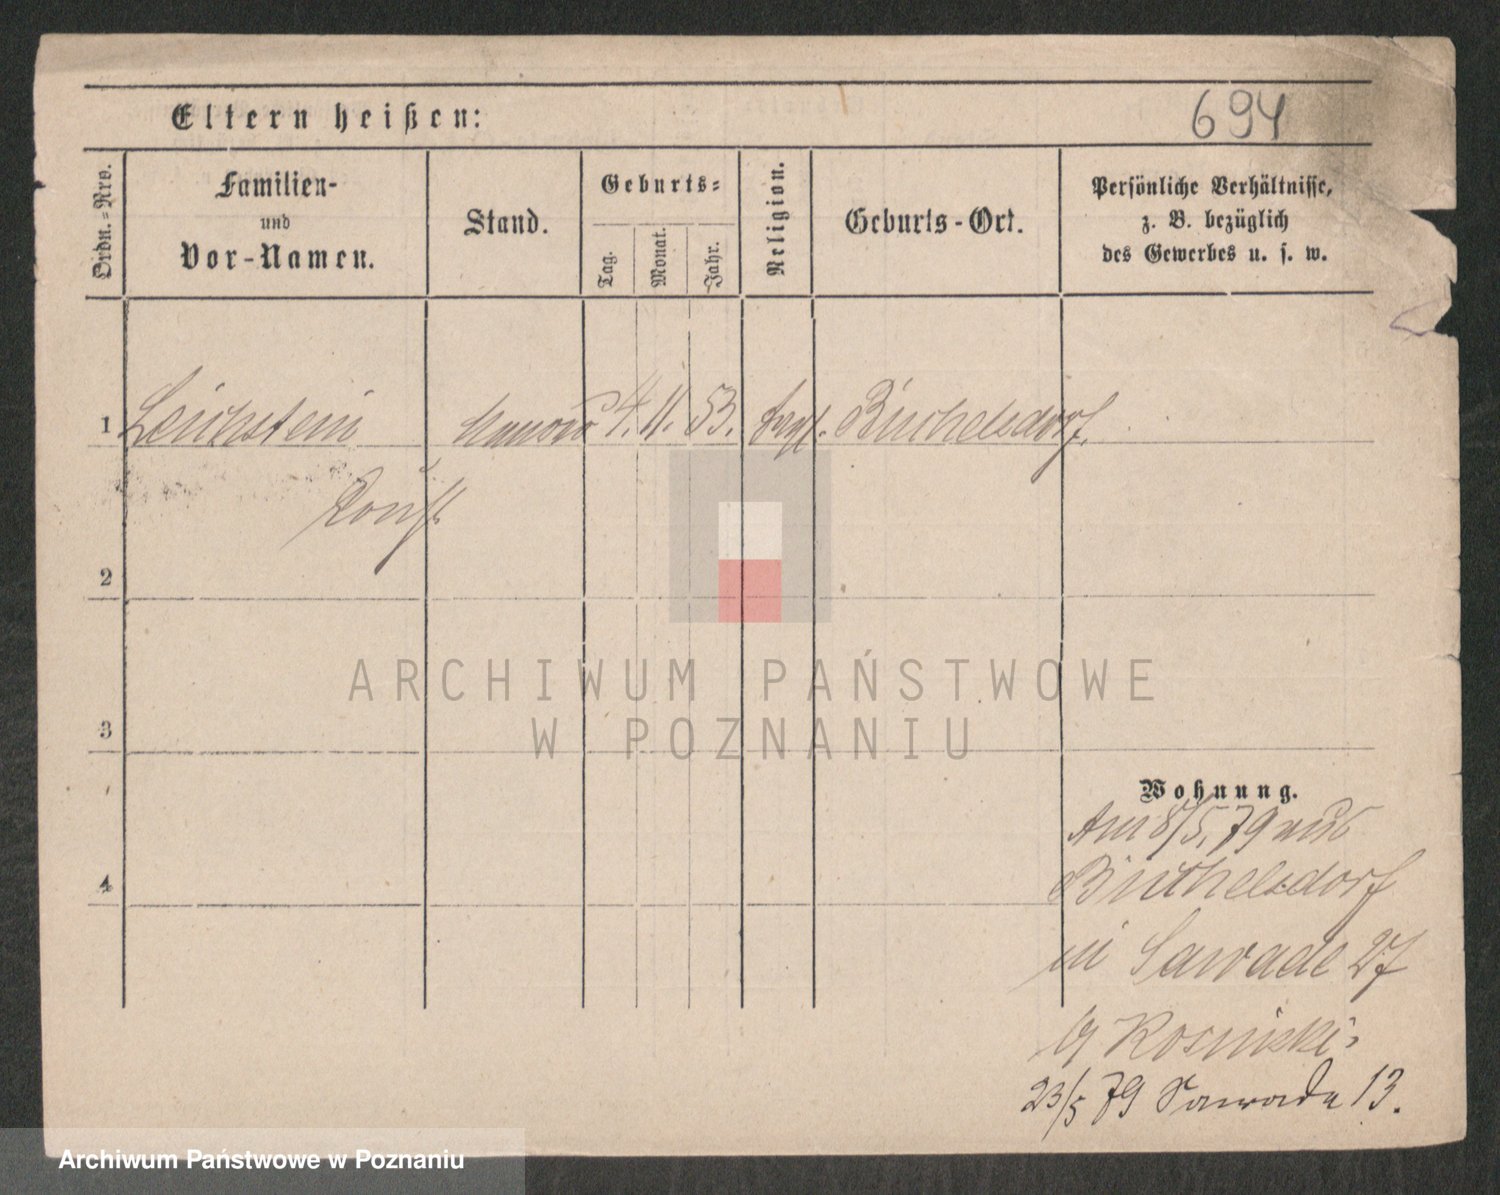 Eltern heißen:
694
Ordn.-Nro.
Familien-
und
Vor-Namen.
Stand.
Geburts-
Tag.
Monat.
Jahr.
Religion.
Geburts-Ort.
Persönliche Verhältnisse,
z. B. bezüglich
des Gewerbes u. s. w.
1 4. 11. 53.
2
ARCHIWUM PAŃSTWOWE
W POZNANIU
3
Wohnung.
Am 8/5. 79 aus
4
in Sawade 27
Rosinski
23/5 79 Sawade 13.
Archiwum Państwowe w Poznaniu